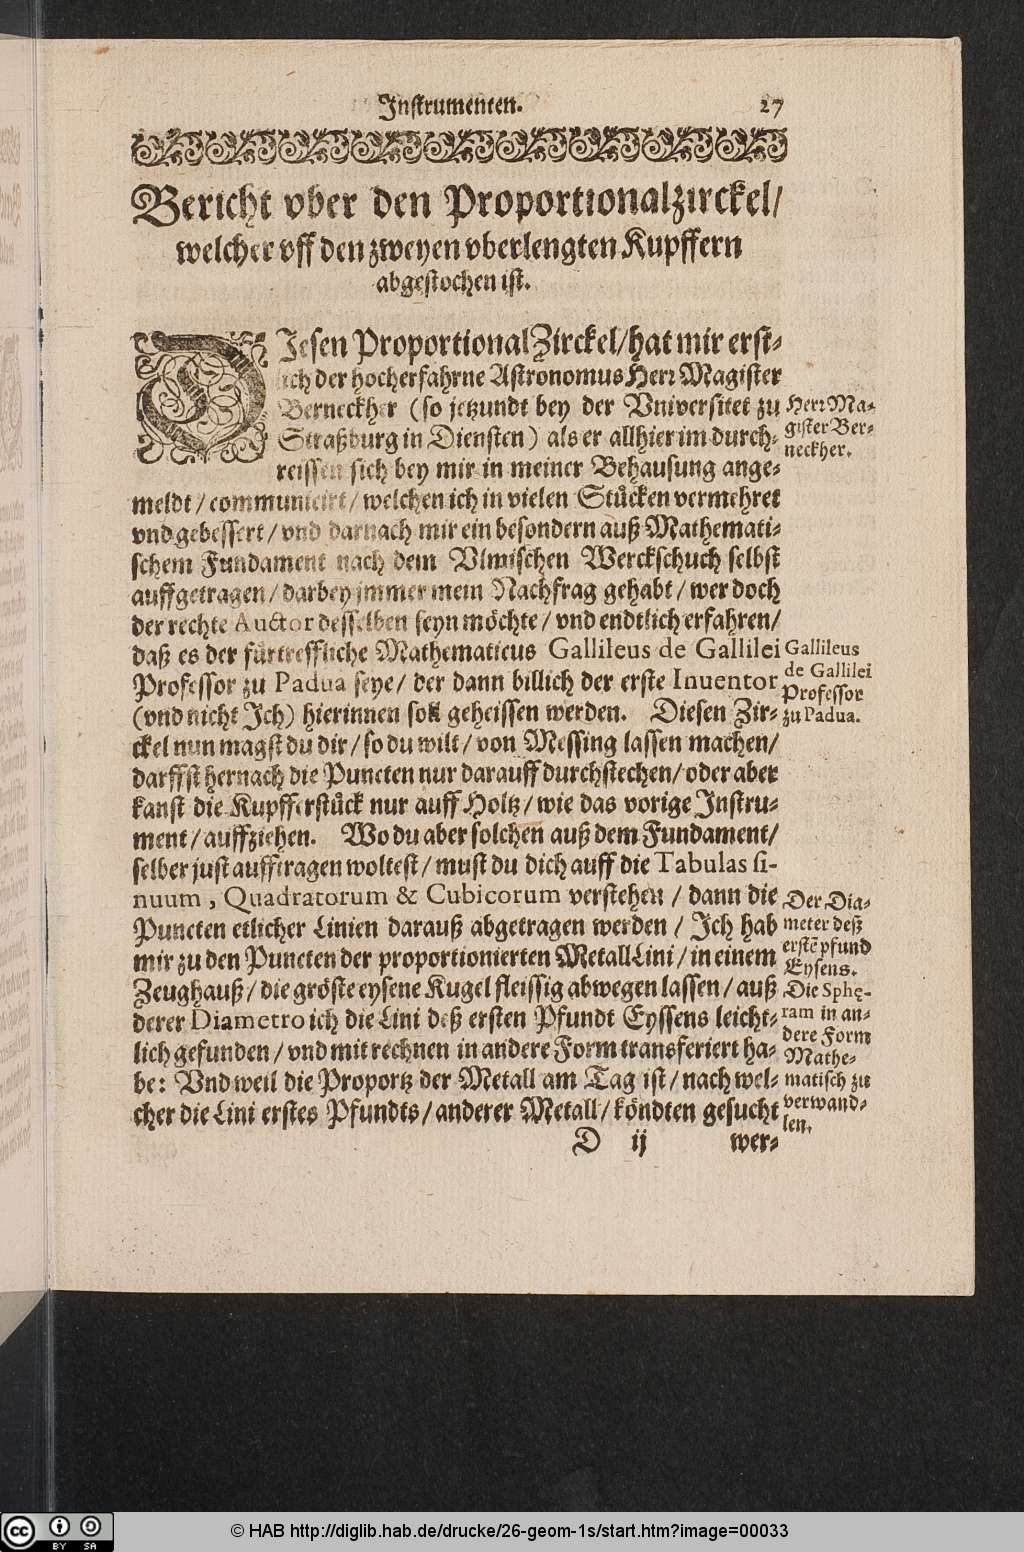 Instrumenten. 27
Bericht vber den Proportionalzirckel/
welcher vff den zweyen vberlengten Kupffern
abgestochen ist.
DIesen Proportional Zirckel/hat mir erst-
lich der hocherfahrne Astronomus Herr Magister
Berneckher (so jetzundt bey der Vniversitet zu
Straßburg in Diensten) als er allhier im durch-
reissen sich bey mir in meiner Behausung ange-
meldt/communicirt/welchen ich in vielen Stücken vermehret
vnd gebessert/vnd darnach mir ein besondern auß Mathemati-
schem Fundament nach dem Vlmischen Werckschuch selbst
auffgetragen/darbey jmmer mein Nachfrag gehabt/wer doch
der rechte Auctor desselben seyn möchte/vnd endtlich erfahren/
daß es der fürtreffliche Mathematicus Gallileus de Gallilei
Professor zu Padua seye/der dann billich der erste Inuentor
(vnd nicht Ich) hierinnen soll geheissen werden. Diesen Zir-
ckel nun magst du dir/so du wilt/von Messing lassen machen/
darffst hernach die Puncten nur darauff durchstechen/oder aber
kanst die Kupfferstück nur auff Holtz/wie das vorige Instru-
ment/auffziehen. Wo du aber solchen auß dem Fundament/
selber just aufftragen woltest/must du dich auff die Tabulas si-
nuum, Quadratorum & Cubicorum verstehen/dann die
Puncten etlicher Linien darauß abgetragen werden/Ich hab
mir zu den Puncten der proportionierten Metall Lini/in einem
Zeughauß/die gröste eysene Kugel fleissig abwegen lassen/auß
derer Diametro ich die Lini deß ersten Pfundt Eyssens leicht-
lich gefunden/vnd mit rechnen in andere Form transferiert ha-
be: Vnd weil die Proportz der Metall am Tag ist/nach wel-
cher die Lini erstes Pfundts/anderer Metall/köndten gesucht
D ij wer-
Herr Ma-
gister Ber-
neckher.
Gallileus
de Gallilei
Professor
zu Padua.
Der Dia-
meter deß
erstē pfund
Eysens.
Die Sphę-
ram in an-
dere Form
Mathe-
matisch zu
verwand-
len.
© HAB http://diglib.hab.de/drucke/26-geom-1s/start.htm?image=00033
cc BY SA